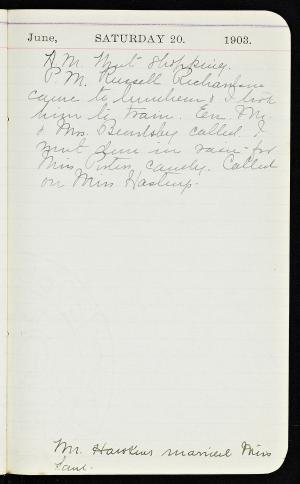 June, SATURDAY 20. 1903.
A.M. Went shopping.
P.M. Russell Richardson
came to luncheon & I took
him to train. Eve. Mr.
& Mrs. Beardsley called. I
went down in rain for
Miss candy. Called
on Miss Hastings.
Mr. Hawkins married Miss